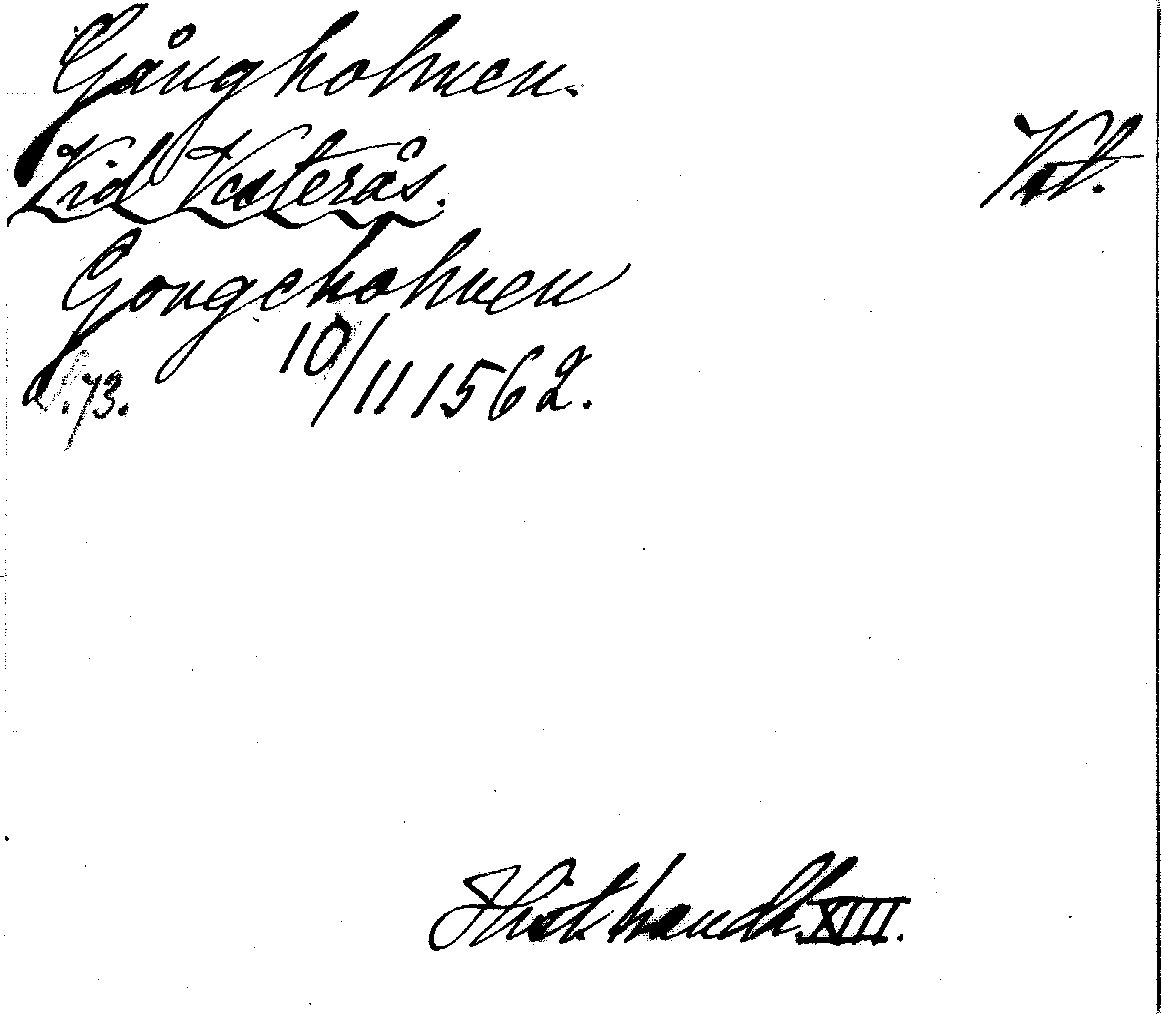 Gångholmen.
Vid Vesterås.
Vst.
Gongeholmen
S. 73. 10/11 1562.
Hist. handl. XIII.